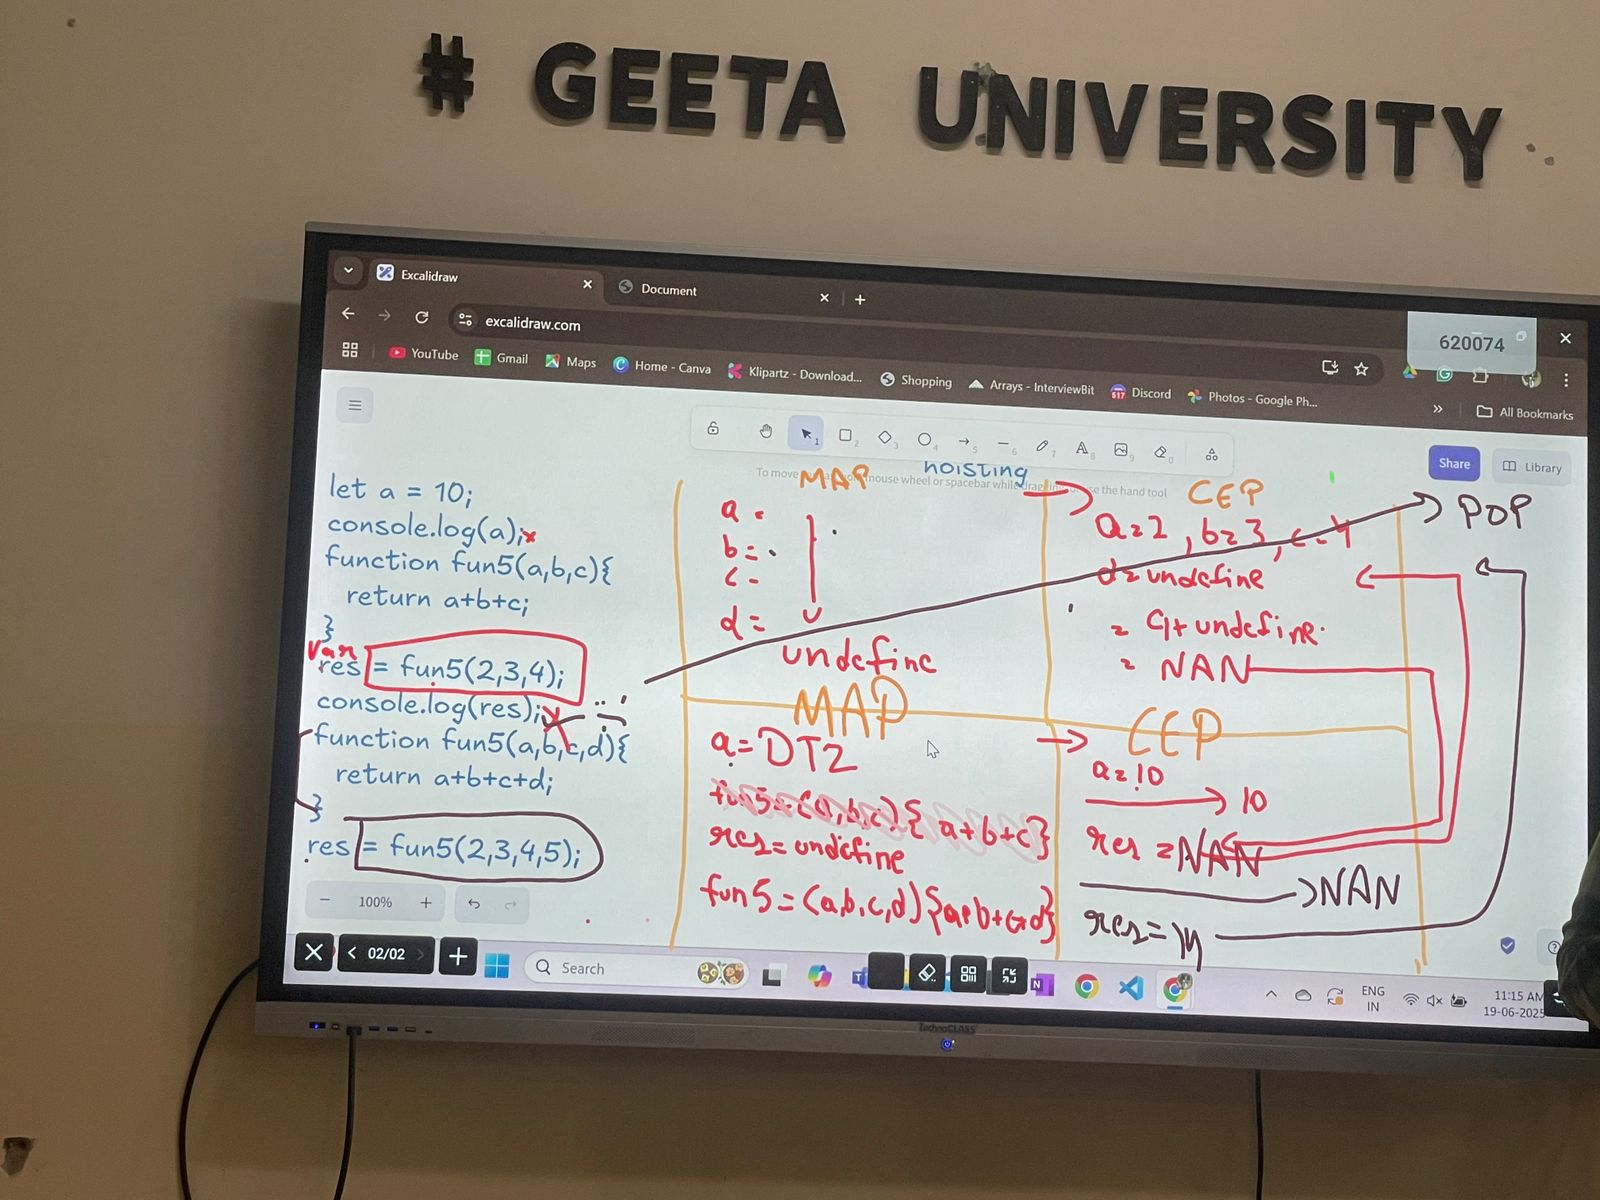 # GEETA UNIVERSITY
Excalidraw
Document
excalidraw.com
620074
YouTube
Gmail
Maps
Home - Canva
Klipartz - Download...
Shopping
Arrays - InterviewBit
Discord
Photos - Google Ph...
All Bookmarks
Share
Library
To move
mouse wheel or spacebar while
the hand tool
let a = 10;
console.log(a);x
function fun5(a,b,c){
return a+b+c;
}
var
res = fun5(2,3,4);
console.log(res);x
function fun5(a,b,c,d){
return a+b+c+d;
}
res = fun5(2,3,4,5);
MAP
hoisting
a =
b =
c -
d =
undefine
CEP
a=2, b=3, c=4
d= undefine
= 9+ undefine.
= NAN
POP
MAP
a= DTZ
fun5=(a,b,c){ a+b+c}
res=undefine
fun5=(a,b,c,d){a+b+c+d}
CEP
a=10
10
res = NAN
NAN
res= 14
100%
02/02
Search
ENG
IN
11:15 AM
19-06-2025
TechnoCLASS